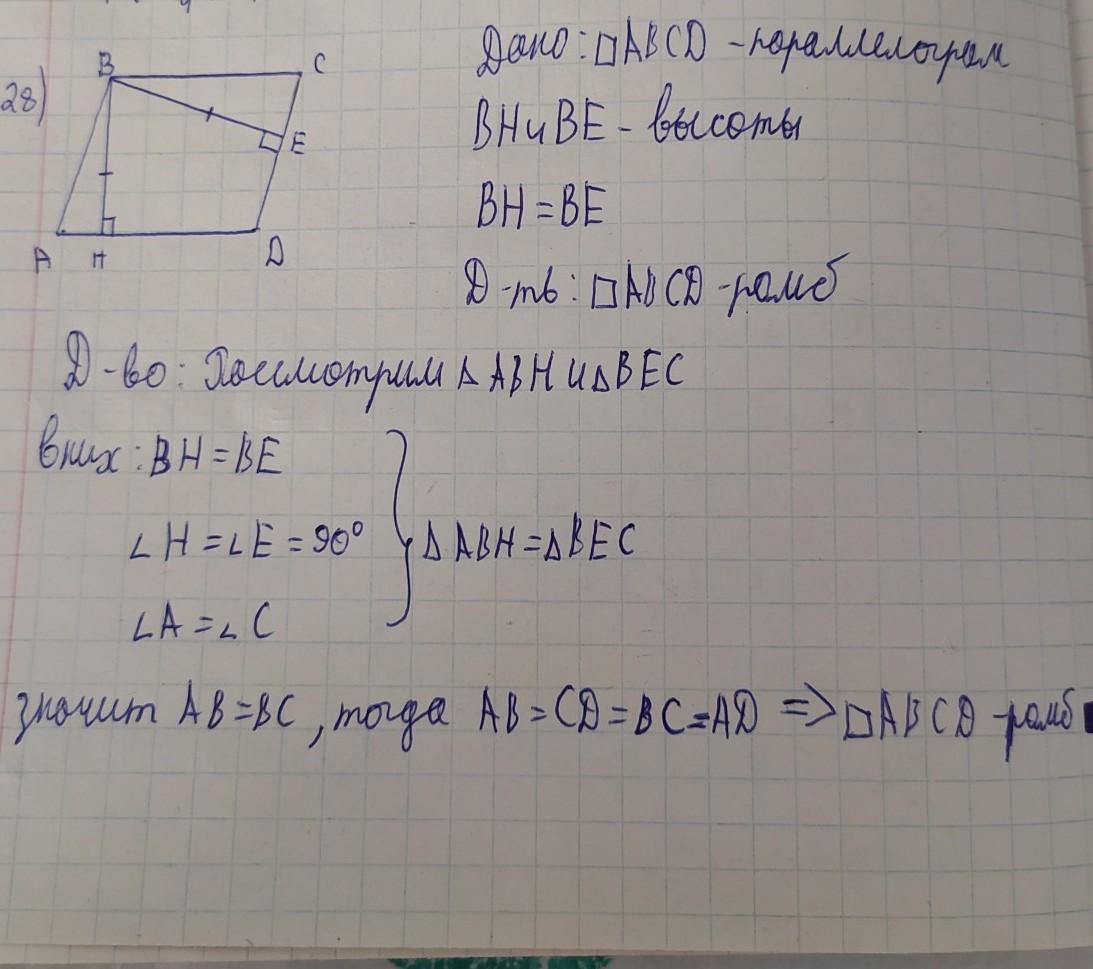 28)
B
C
E
A
H
D
Дано: □ABCD - параллелограм
BH и BE - высоты
BH = BE
Д-ть: □ABCD - ромб
Д-во: Рассмотрим Δ ABH и Δ BEC
в них: BH = BE
∠H = ∠E = 90°
ΔABH = ΔBEC
∠A = ∠C
значит AB = BC, тогда AB = CD = BC = AD => □ABCD - ромб